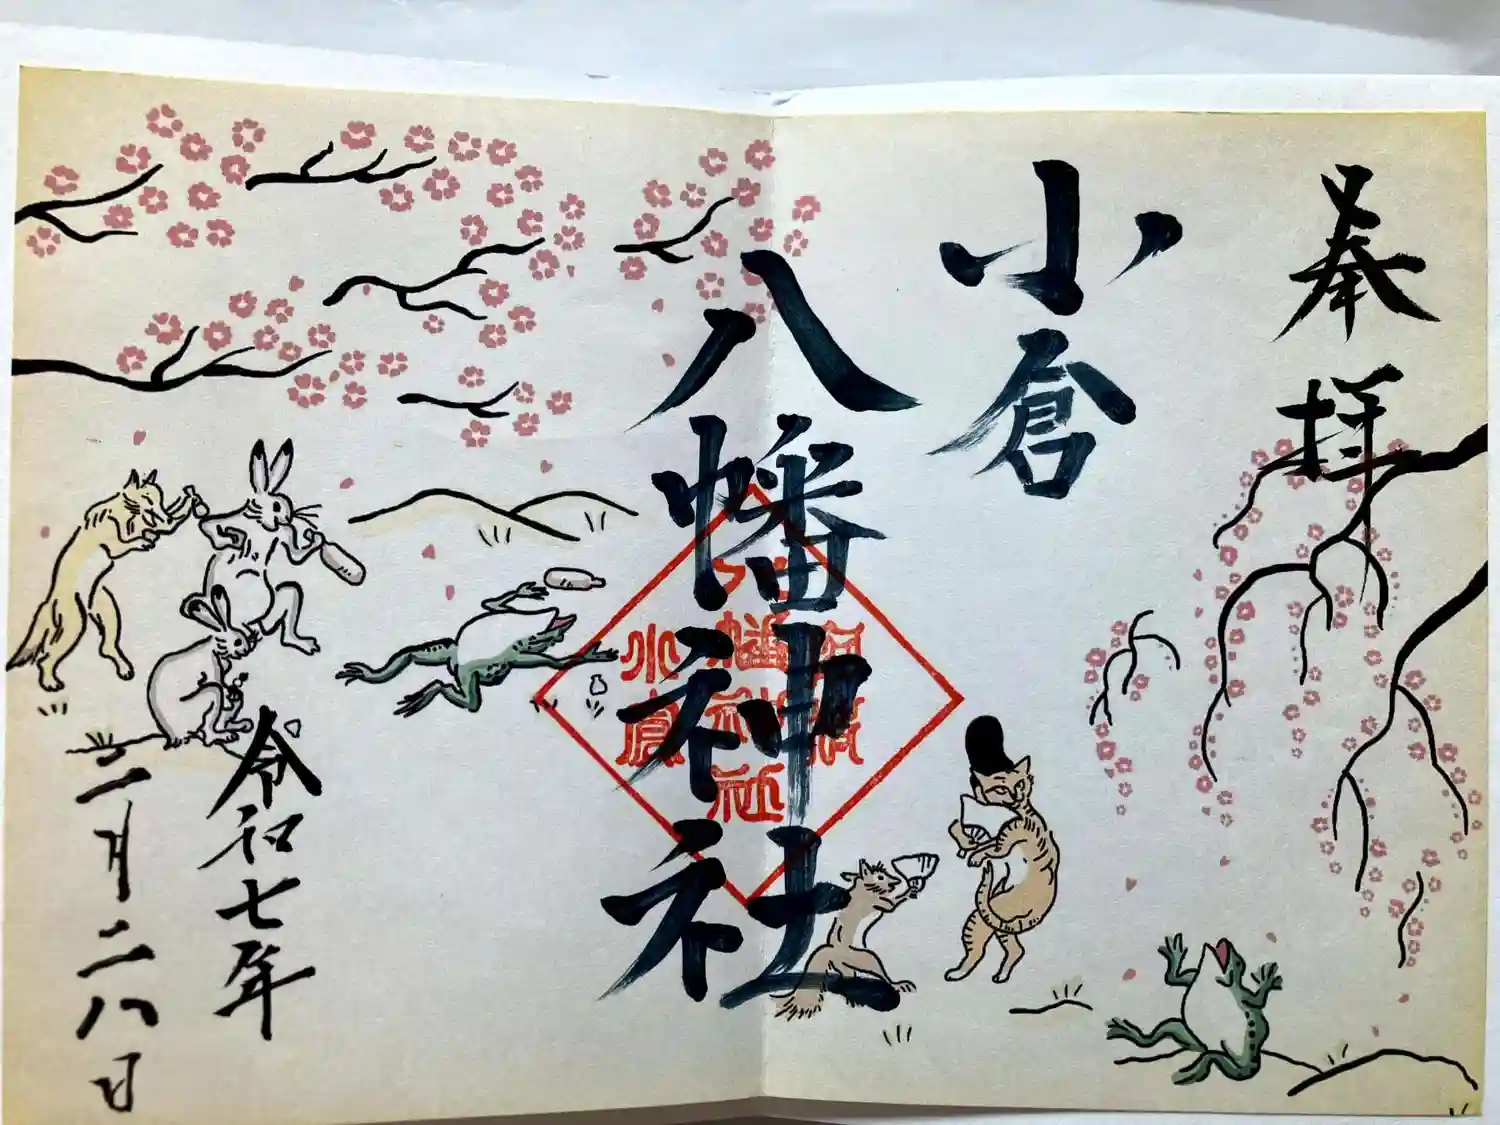 奉拝
小倉
八幡神社
八幡神社
小倉
令和七年
三月二八日